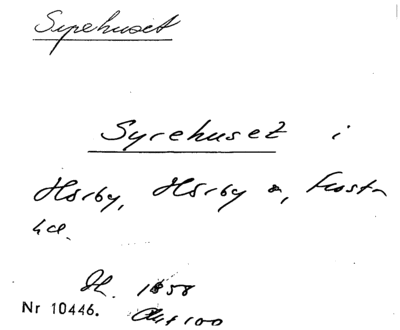 Syrehuset
Syrehuset i
Hörby, Hörby s, Frosta
hd.
Jl. 1858
Nr 10446. Akt 100